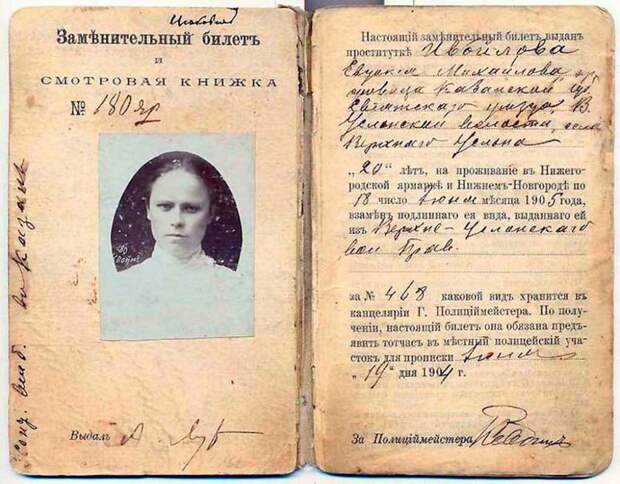 Замѣнительный билетъ
и
СМОТРОВАЯ КНИЖКА
№ 180 яр
Выдалъ
Настоящій замѣнительный билетъ выданъ
проституткѣ Ивойлова
Евдокія Михайлова, кр
Казанской губ.
Свіяжскаго уѣзда, В.
Услонской волости, села
Верхняго Услона
„20“ лѣтъ, на проживаніе въ Нижего-
родской ярмаркѣ и Нижнемъ-Новгородѣ по
18 число іюня мѣсяца 1905 года,
взамѣнъ подлиннаго ея вида, выданнаго ей
изъ Верхне-Услонскаго
вол Прав.
за № 463 каковой видъ хранится въ
канцеляріи Г. Полиціймейстера. По полу-
ченіи, настоящій билетъ она обязана предъ-
явить тотчасъ въ мѣстный полицейскій уча-
стокъ для прописки іюня
„19“ дня 1904 г.
За Полиціймейстера